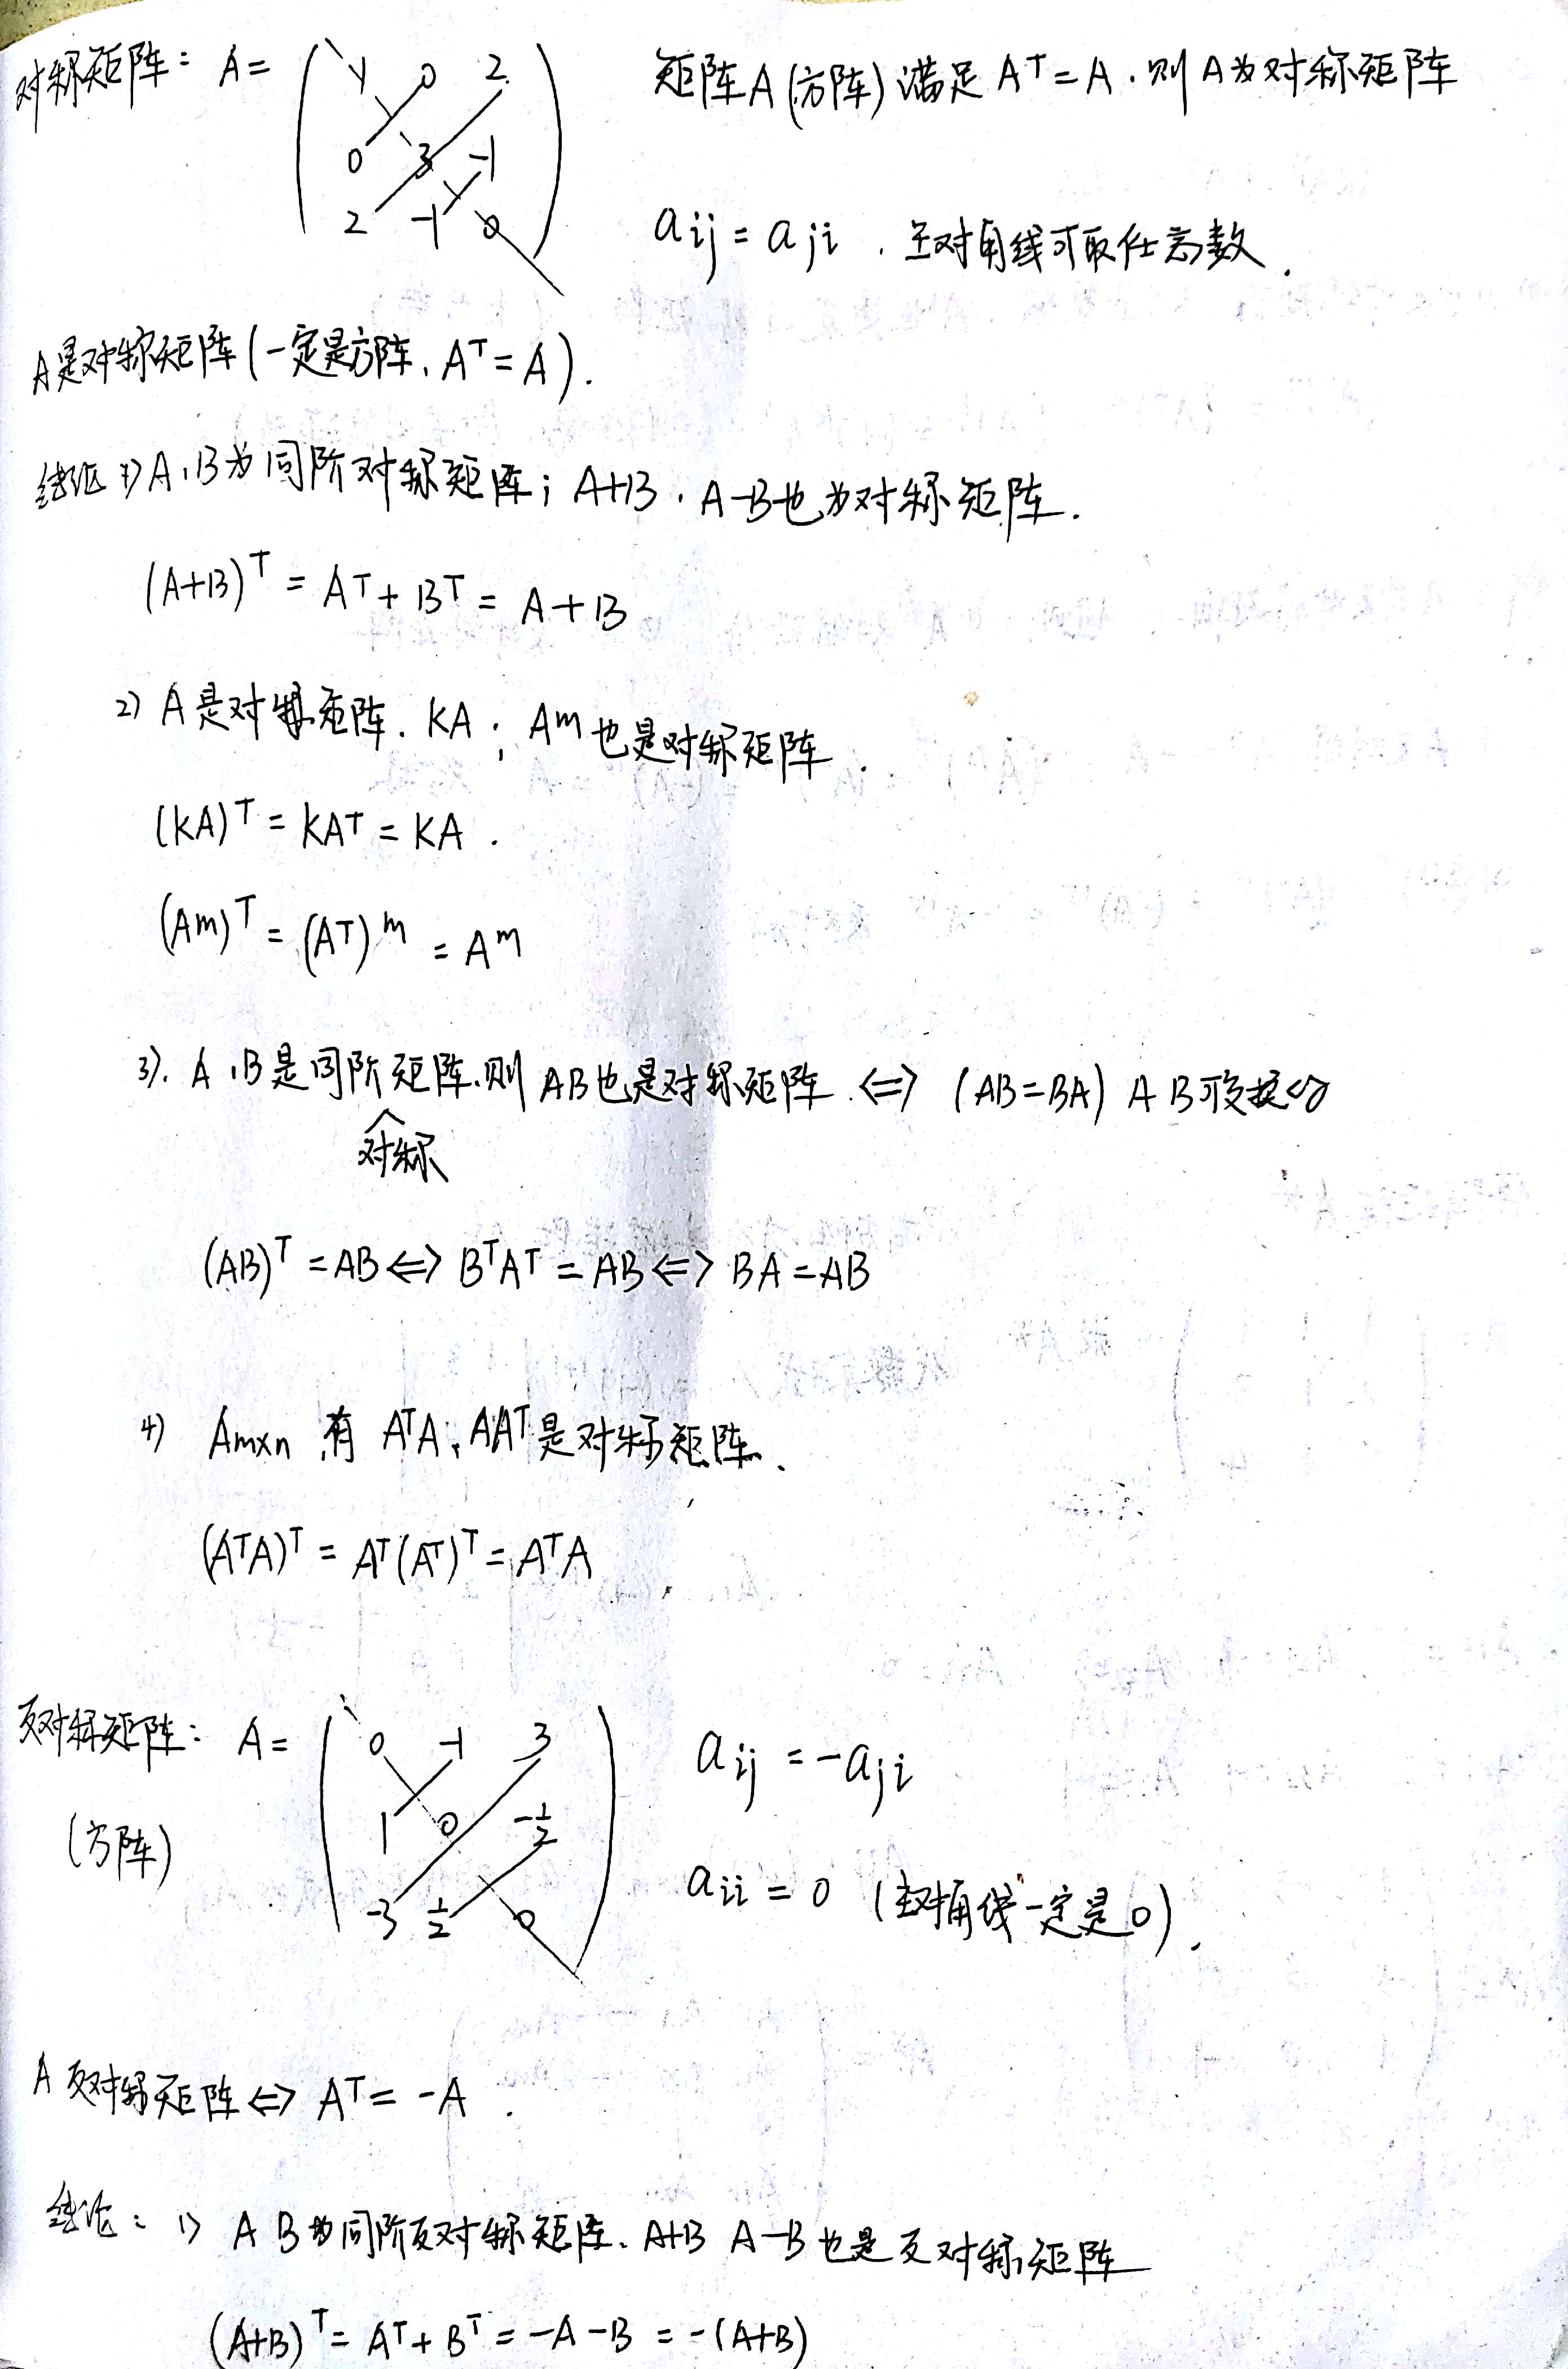 对称矩阵: A= ( 1 0 2 矩阵A(方阵)满足 Aᵀ=A.则A为对称矩阵
0 3 -1
2 -1 0 ) aij = aji . 主对角线可取任意数.
A是对称矩阵(一定是方阵, Aᵀ=A).
结论 1) A,B为同阶对称矩阵; A+B, A-B也为对称矩阵.
(A+B)ᵀ = Aᵀ+Bᵀ = A+B
2) A是对称矩阵. KA; Aᵐ也是对称矩阵.
(KA)ᵀ = KAᵀ = KA.
(Aᵐ)ᵀ = (Aᵀ)ᵐ = Aᵐ
3). A,B是同阶矩阵.则AB也是对称矩阵.⇔ (AB=BA) A B可交换
对称
(AB)ᵀ=AB⇔BᵀAᵀ=AB⇔BA=AB
4) Am×n 有 AᵀA, AAᵀ是对称矩阵.
(AᵀA)ᵀ = Aᵀ(Aᵀ)ᵀ = AᵀA
反对称矩阵: A= ( 0 -1 3 aij = -aji
(方阵) 1 0 -1/2
-3 1/2 0 ) aii = 0 (主对角线一定是0).
A 反对称矩阵⇔ Aᵀ= -A.
结论: 1) A B为同阶反对称矩阵. A+B A-B也是反对称矩阵
(A+B)ᵀ= Aᵀ+Bᵀ = -A-B = -(A+B)